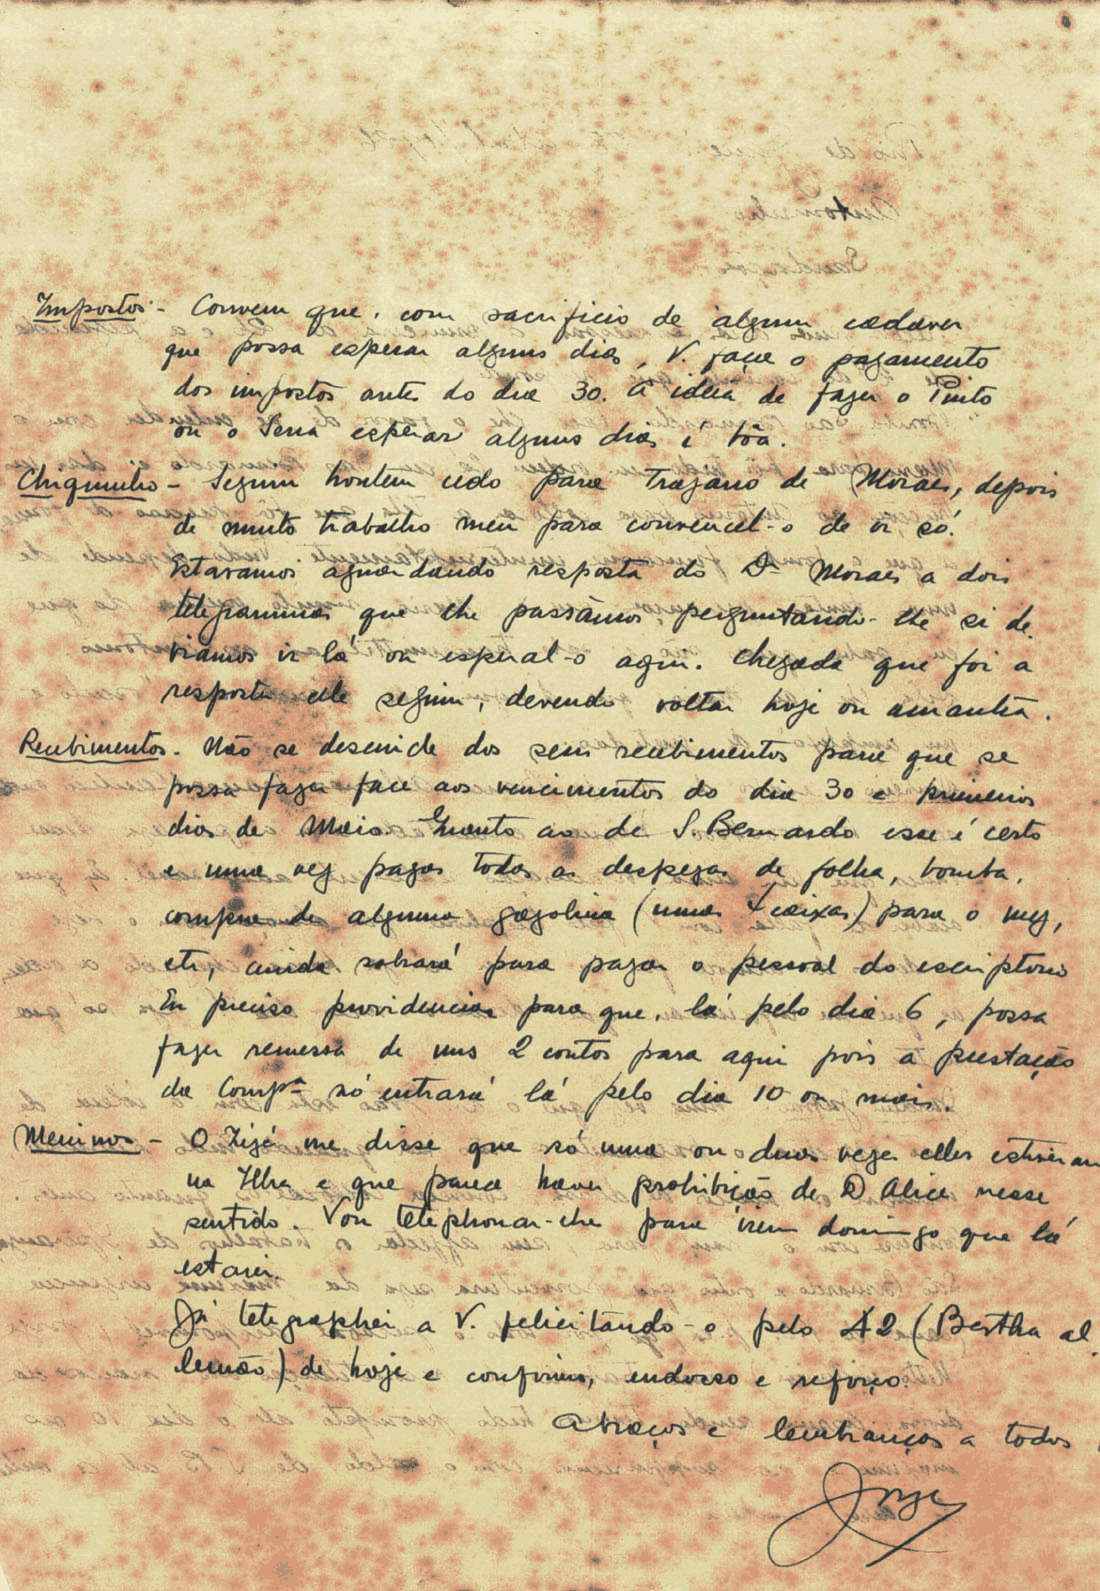 Impostos - Convem que, com sacrificio de algum cadaver
que possa esperar alguns dias, V. faça o pagamento
dos impostos antes do dia 30. A idéia de fazer o Pinto
ou o Serra esperar alguns dias é bôa.
Chiquinho - Seguiu hontem cedo para Trajano de Moraes, depois
de muito trabalho meu para convencel-o de ir só.
Estavamos aguardando resposta do Dr Moraes a dois
telegrammas que lhe passámos, perguntando-lhe si de-
viamos ir lá ou esperal-o aqui. Chegada que foi a
resposta elle seguiu, devendo voltar hoje ou amanhã.
Recebimentos. Não se descuide dos seus recebimentos para que se
possa fazer face aos vencimentos do dia 30 e primeiros
dias de Maio. Quanto ao de S. Bernardo esse é certo
e uma vez pagas todas as despezas de folha, bomba,
compra de alguma gazolina (umas caixas) para o mez,
etc, ainda sobrará para pagar o pessoal do escriptorio
Eu preciso providenciar para que, lá pelo dia 6, possa
fazer remessa de uns 2 contos para aqui pois a prestação
da Compª só entrará lá pelo dia 10 ou mais.
Meninos - O Zizé me disse que só uma ou duas vezes elles estiveram
na Ilha e que parece haver prohibição de D Alice nesse
sentido. Vou telephonar-lhe para irem domingo que lá
estarei.
Já telegraphei a V. felicitando-o pelo 42 (Bertha al-
lemão) de hoje e confirmo, endosso e reforço.
Abraços e lembranças a todos
Jorge